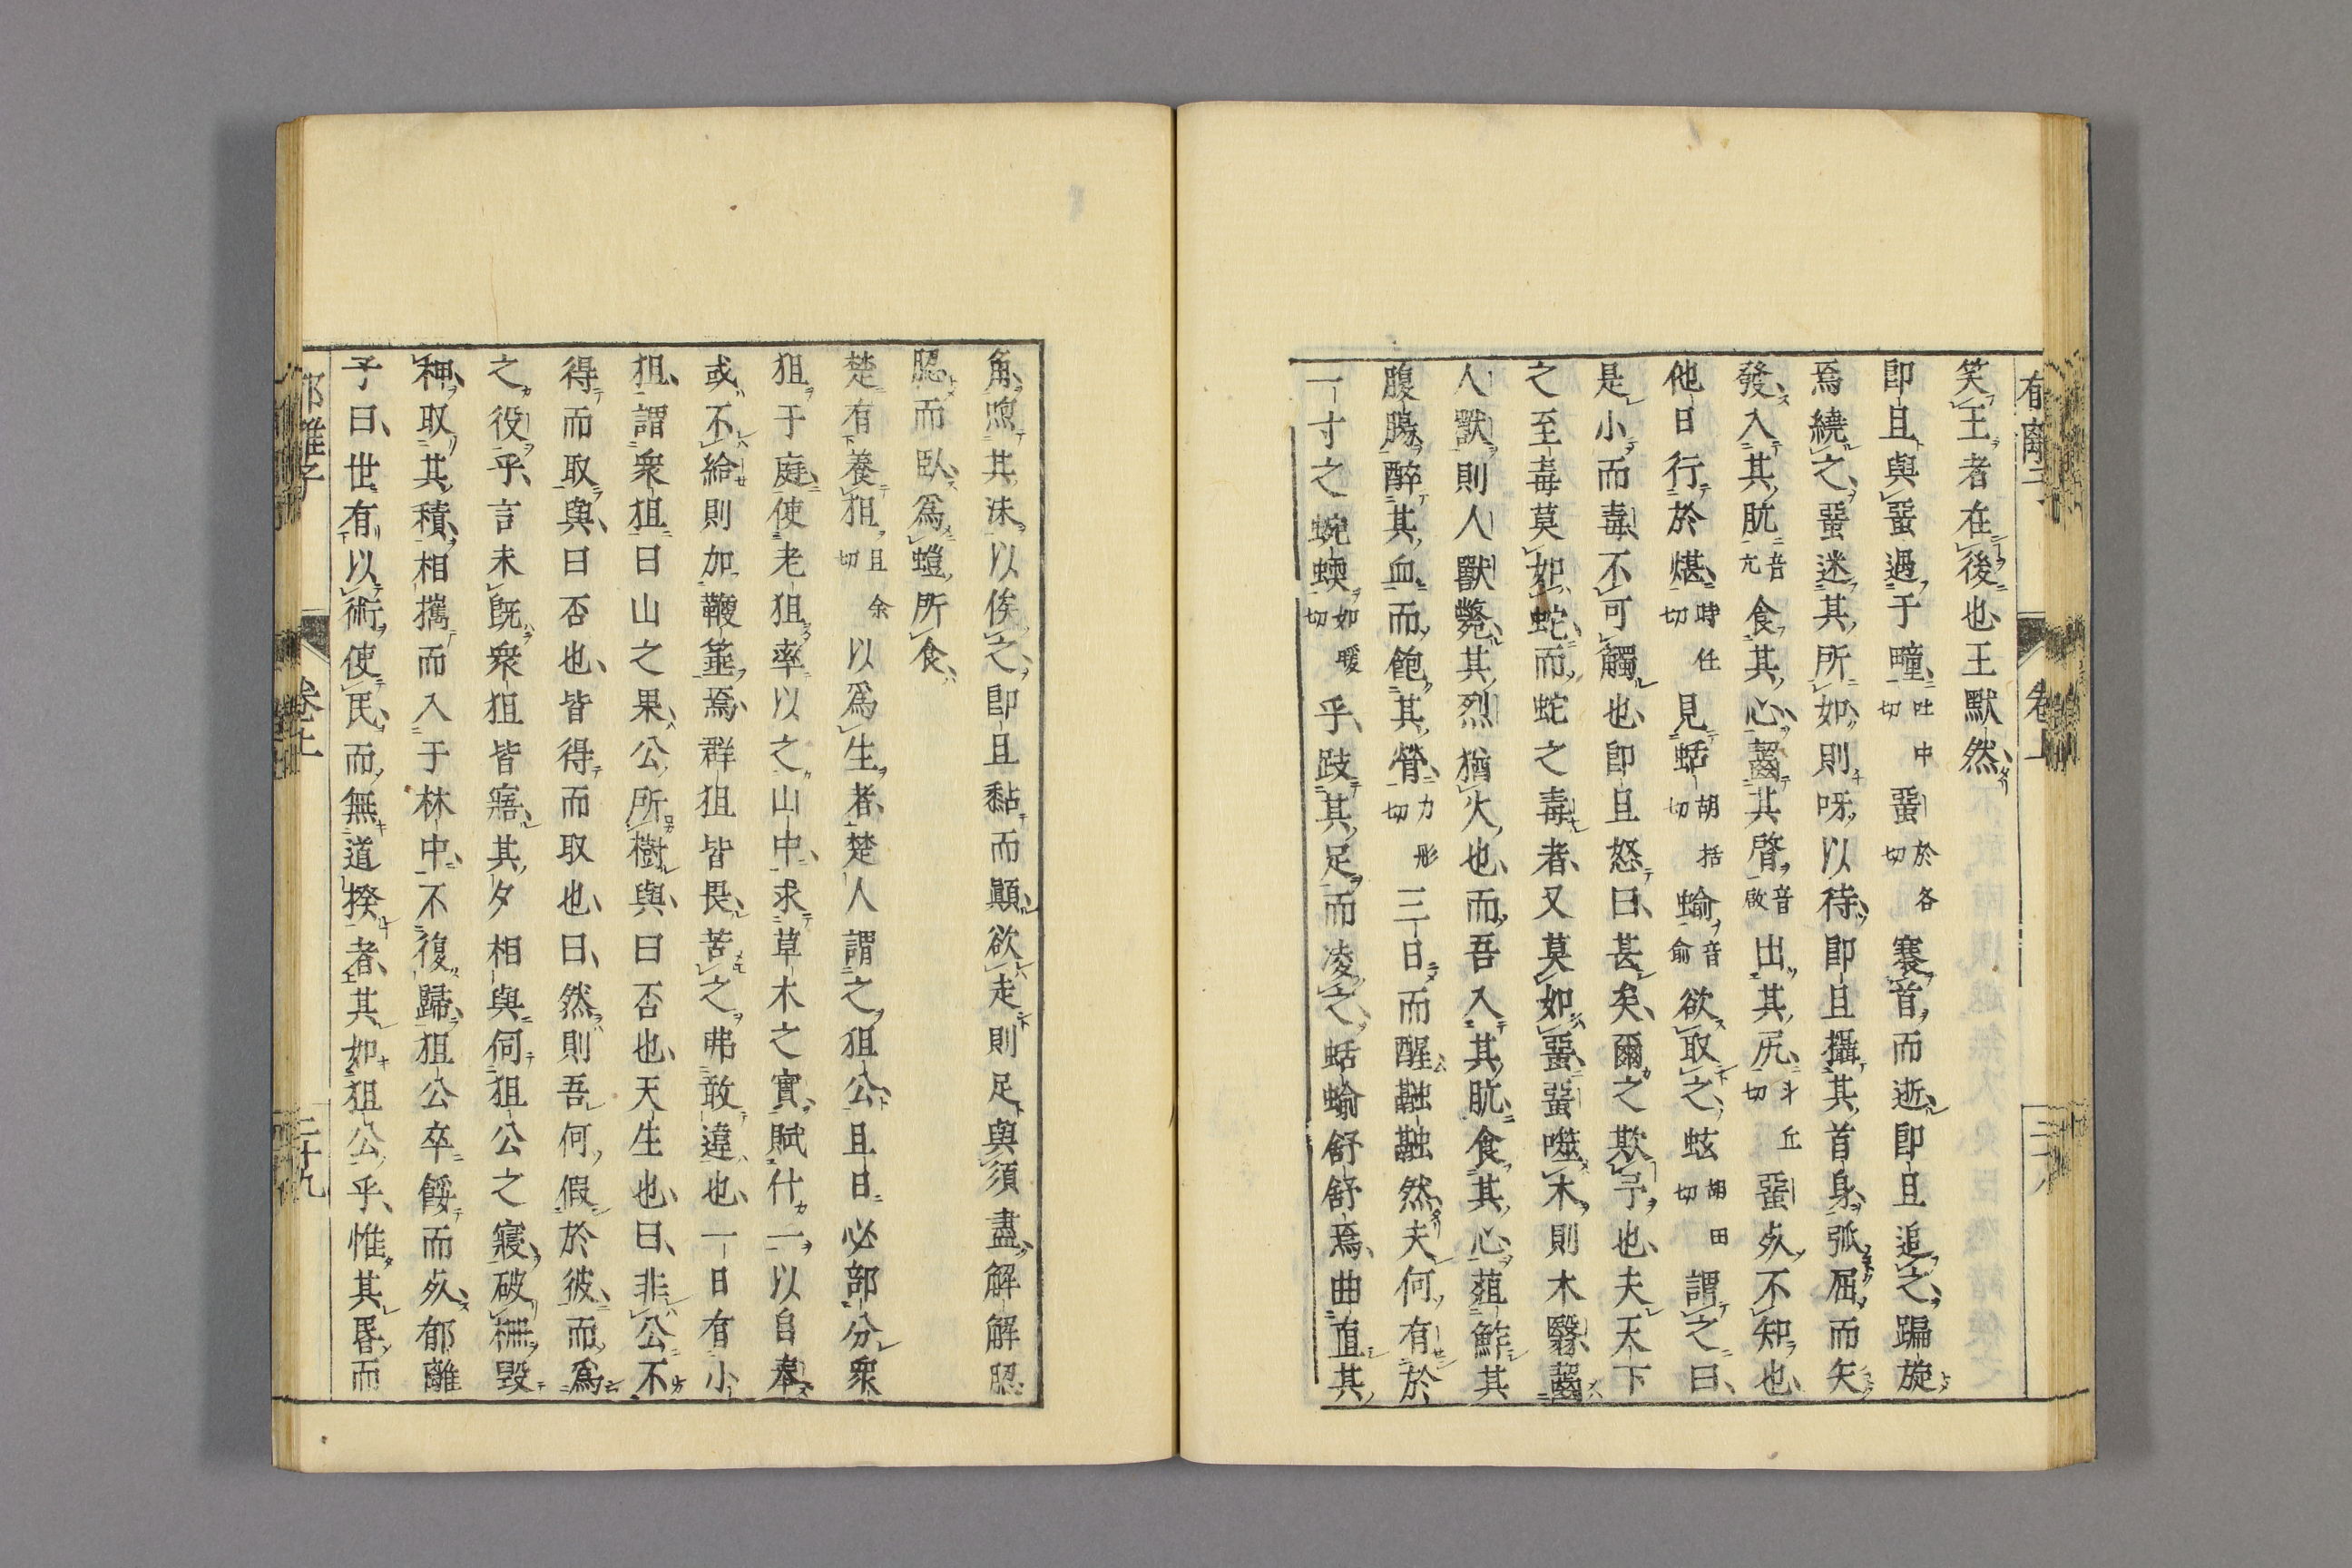 笑王者在後也王默然
卽且與蝁過于疃吐中切蝁於各切褰首而逝卽且追之蹁旋
焉繞之蝁迷其所如則呀以待卽且攝其首身弧屈而矢
發入其肮音亢食其心齧其䏿音啟出其尻斗丘切蝁夊不知也
他日行於煁時任切見蛞胡括切蝓音俞欲取之蚿胡田切謂之曰
是小而毒不可觸也卽且怒曰甚矣爾之欺予也夫天下
之至毒莫如蛇而蛇之毒者又莫如蝁蝁噬木則木翳齧
人獸則人獸斃其烈猶火也而吾入其肮食其心葅鮓其
腹腸醉其血而飽其膋力彫切三日而醒融融然夫何有於
一寸之蜿蝡如暖切乎跂其足而凌之蛞蝓舒舒焉曲直其
角喣其沬以俟之卽且黏而顚欲走則足與須盡解解䏮
䏮而臥爲螘所食
楚有養狙且余切以爲生者楚人謂之狙公旦日必部分衆
狙于庭使老狙率以之山中求草木之實賦什一以自奉
或不給則加鞭箠焉群狙皆畏苦之弗敢違也一日有小
狙謂衆狙曰山之果公所樹與曰否也天生也曰非公不
得而取與曰否也皆得而取也曰然則吾何假於彼而爲
之役乎言未既衆狙皆寤其夕相與伺狙公之寢破柵毀
柙取其積相攜而入于林中不復歸狙公卒餒而夊郁離
子曰世有以術使民而無道揆者其如狙公乎惟其昬而
郁離子
卷上
二十九